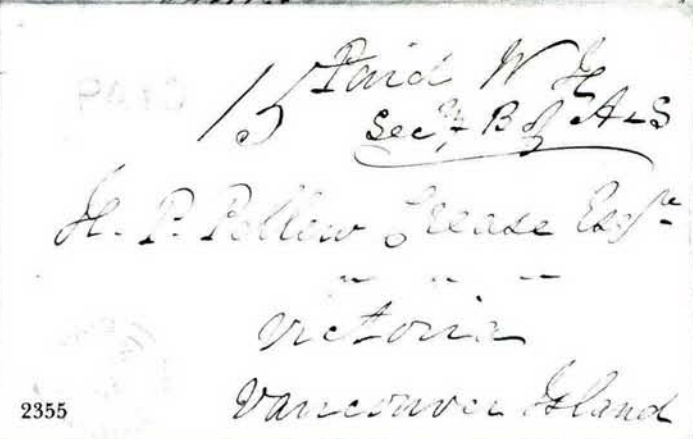 15 Paid W H
Secy B of A & S
H. P. Pellew Crease Esqre
Victoria
Vancouver Island
2355